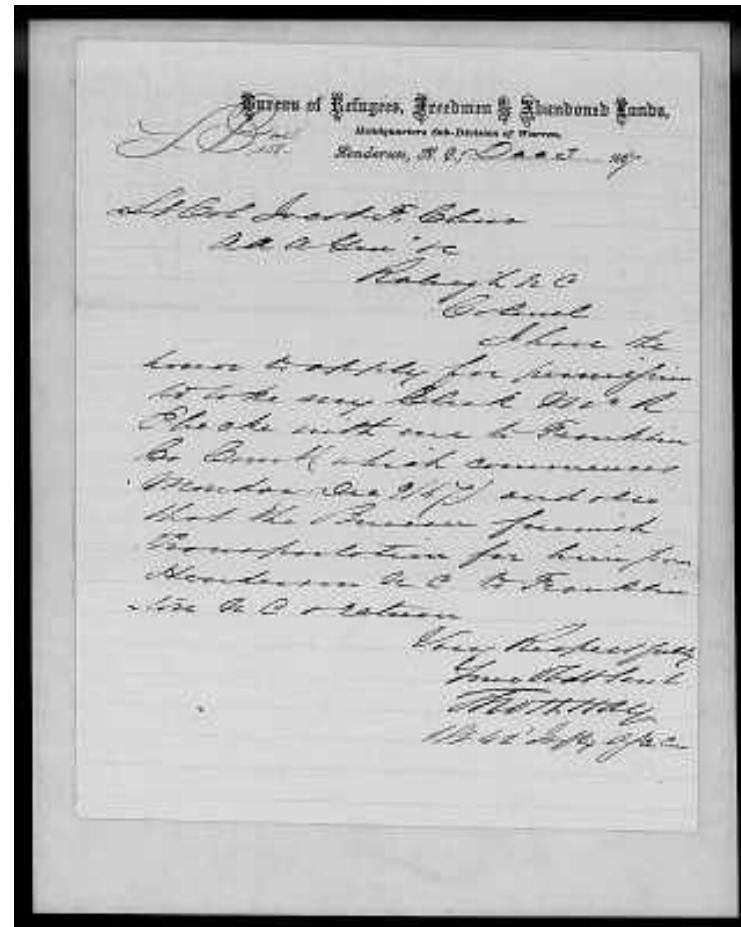 Bureau of Refugees, Freedmen & Abandoned Lands,
Headquarters Sub-Division of Warren,
Henderson, N. C., Dec 2 1867
Lt Col Jacob F. Chur
A A A Gen'l &c
Raleigh N C
Colonel
I have the
honor to apply for permission
to take my Clerk
with me to Franklin
Co Court which commences
Monday Dec 9/67 and also
that the Bureau furnish
Transportation for him from
Henderson N C to Franklin
N C & return
Very Respectfully
Your Obdt Servt